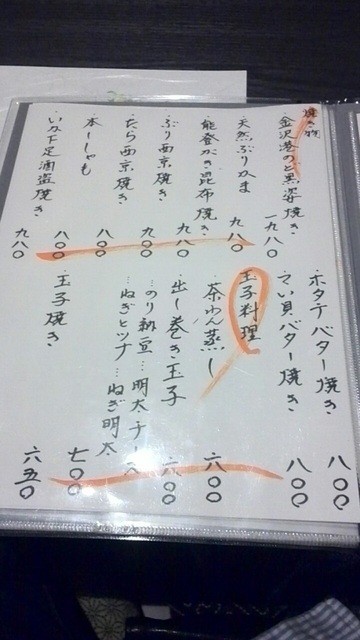 焼き物
・金沢港のど黒姿焼き 一九八〇
・天然ぶりかま 九八〇
・能登がき昆布焼き 九八〇
・ぶり西京焼き 九〇〇
・たら西京焼き 八〇〇
・本ししゃも 八〇〇
・いか下足酒盗焼き 九八〇
・ホタテバター焼き 八〇〇
・つい貝バター焼き 八〇〇
玉子料理
・茶わん蒸し 六〇〇
・出し巻き玉子 六〇〇
…のり納豆…明太チーズ
…ねぎとツナ…ねぎ明太 七〇〇
・玉子焼き 六五〇